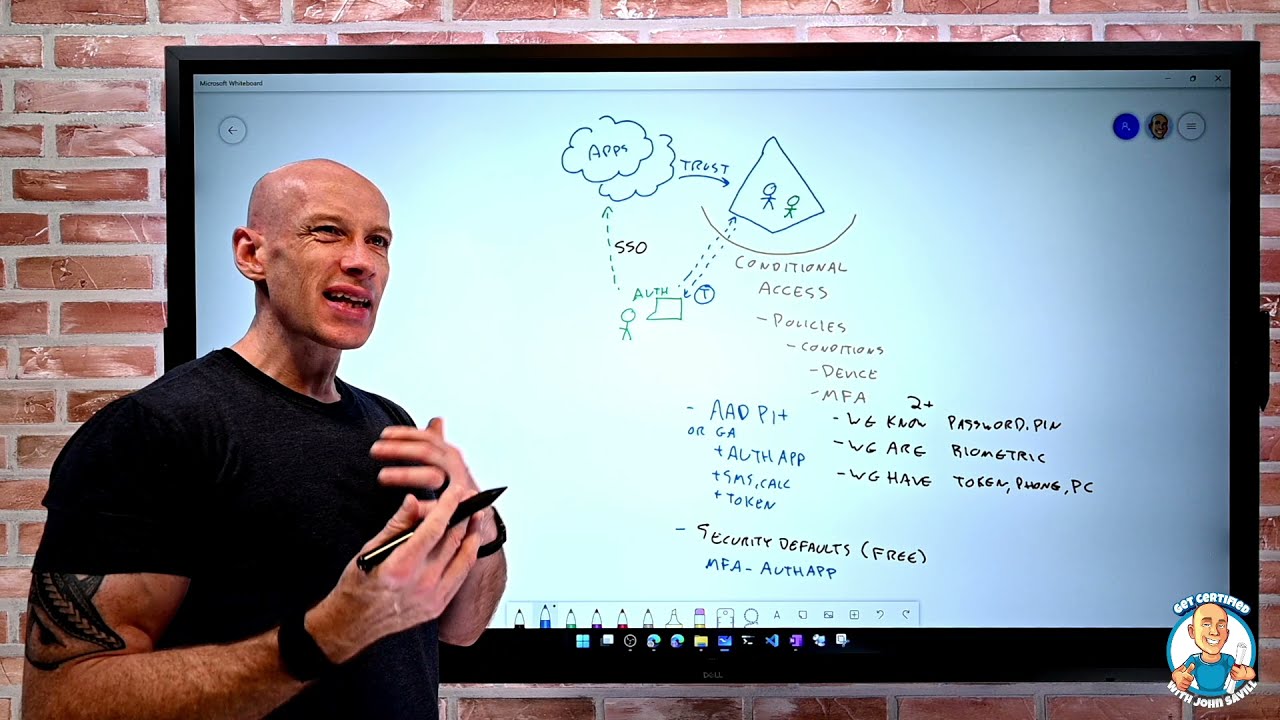 Microsoft Whiteboard
APPS
TRUST
SSO
AUTH
T
CONDITIONAL
ACCESS
- POLICIES
- CONDITIONS
- DEVICE
- MFA
2+
- WE KNOW PASSWORD, PIN
- WE ARE BIOMETRIC
- WE HAVE TOKEN, PHONE, PC
- AAD P1+
OR GA
+ AUTH APP
+ SMS, CALL
+ TOKEN
- SECURITY DEFAULTS (FREE)
MFA - AUTH APP
DELL
GET CERTIFIED
WITH JOHN SAVILL